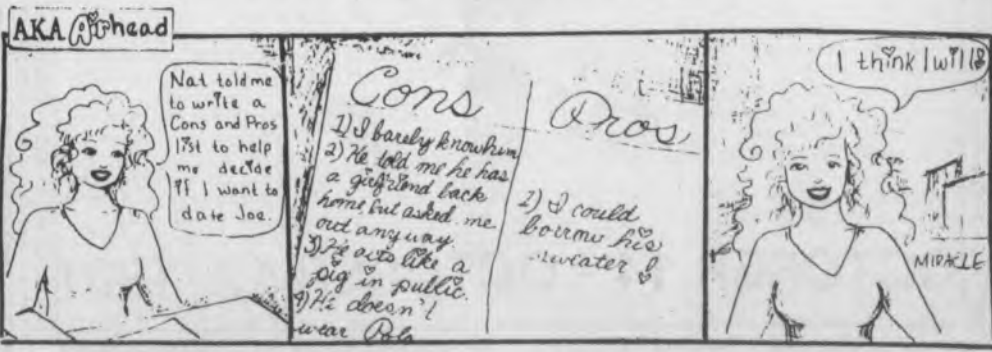 AKA Airhead
Nat told me
to write a
Cons and Pros
list to help
me decide
if I want to
date Joe.
Cons
1) I barely know him
2) He told me he has
a girlfriend back
home, but asked me
out anyway.
3) He acts like a
pig in public.
4) He doesn't
wear Polo
Pros
1) I could
borrow his
sweater!
I think I will!
MIRACLE